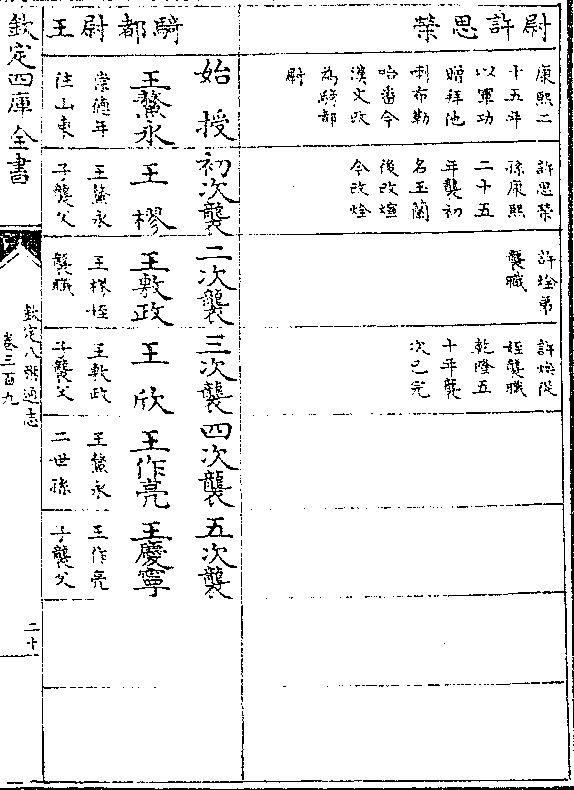 尉許思榮
康熙二
十五年
以軍功
贈拜他
喇布勒
哈番今
漢文改
為騎都
尉
許思榮
孫康熙
二十五
年襲初
名玉蘭
後改煊
今改烇
許烇弟
襲職
許煥從
姪襲職
乾隆五
十年襲
次已完
騎都尉王
始授
初次襲
二次襲
三次襲
四次襲
五次襲
王鰲永
王樛
王敷政
王欣
王作亮
王慶寧
崇德年
任山東
王鰲永
子襲父
王樛姪
襲職
王敷政
子襲父
王鰲永
二世孫
王作亮
子襲父
欽定四庫全書
欽定八旗通志
卷三百九
二十